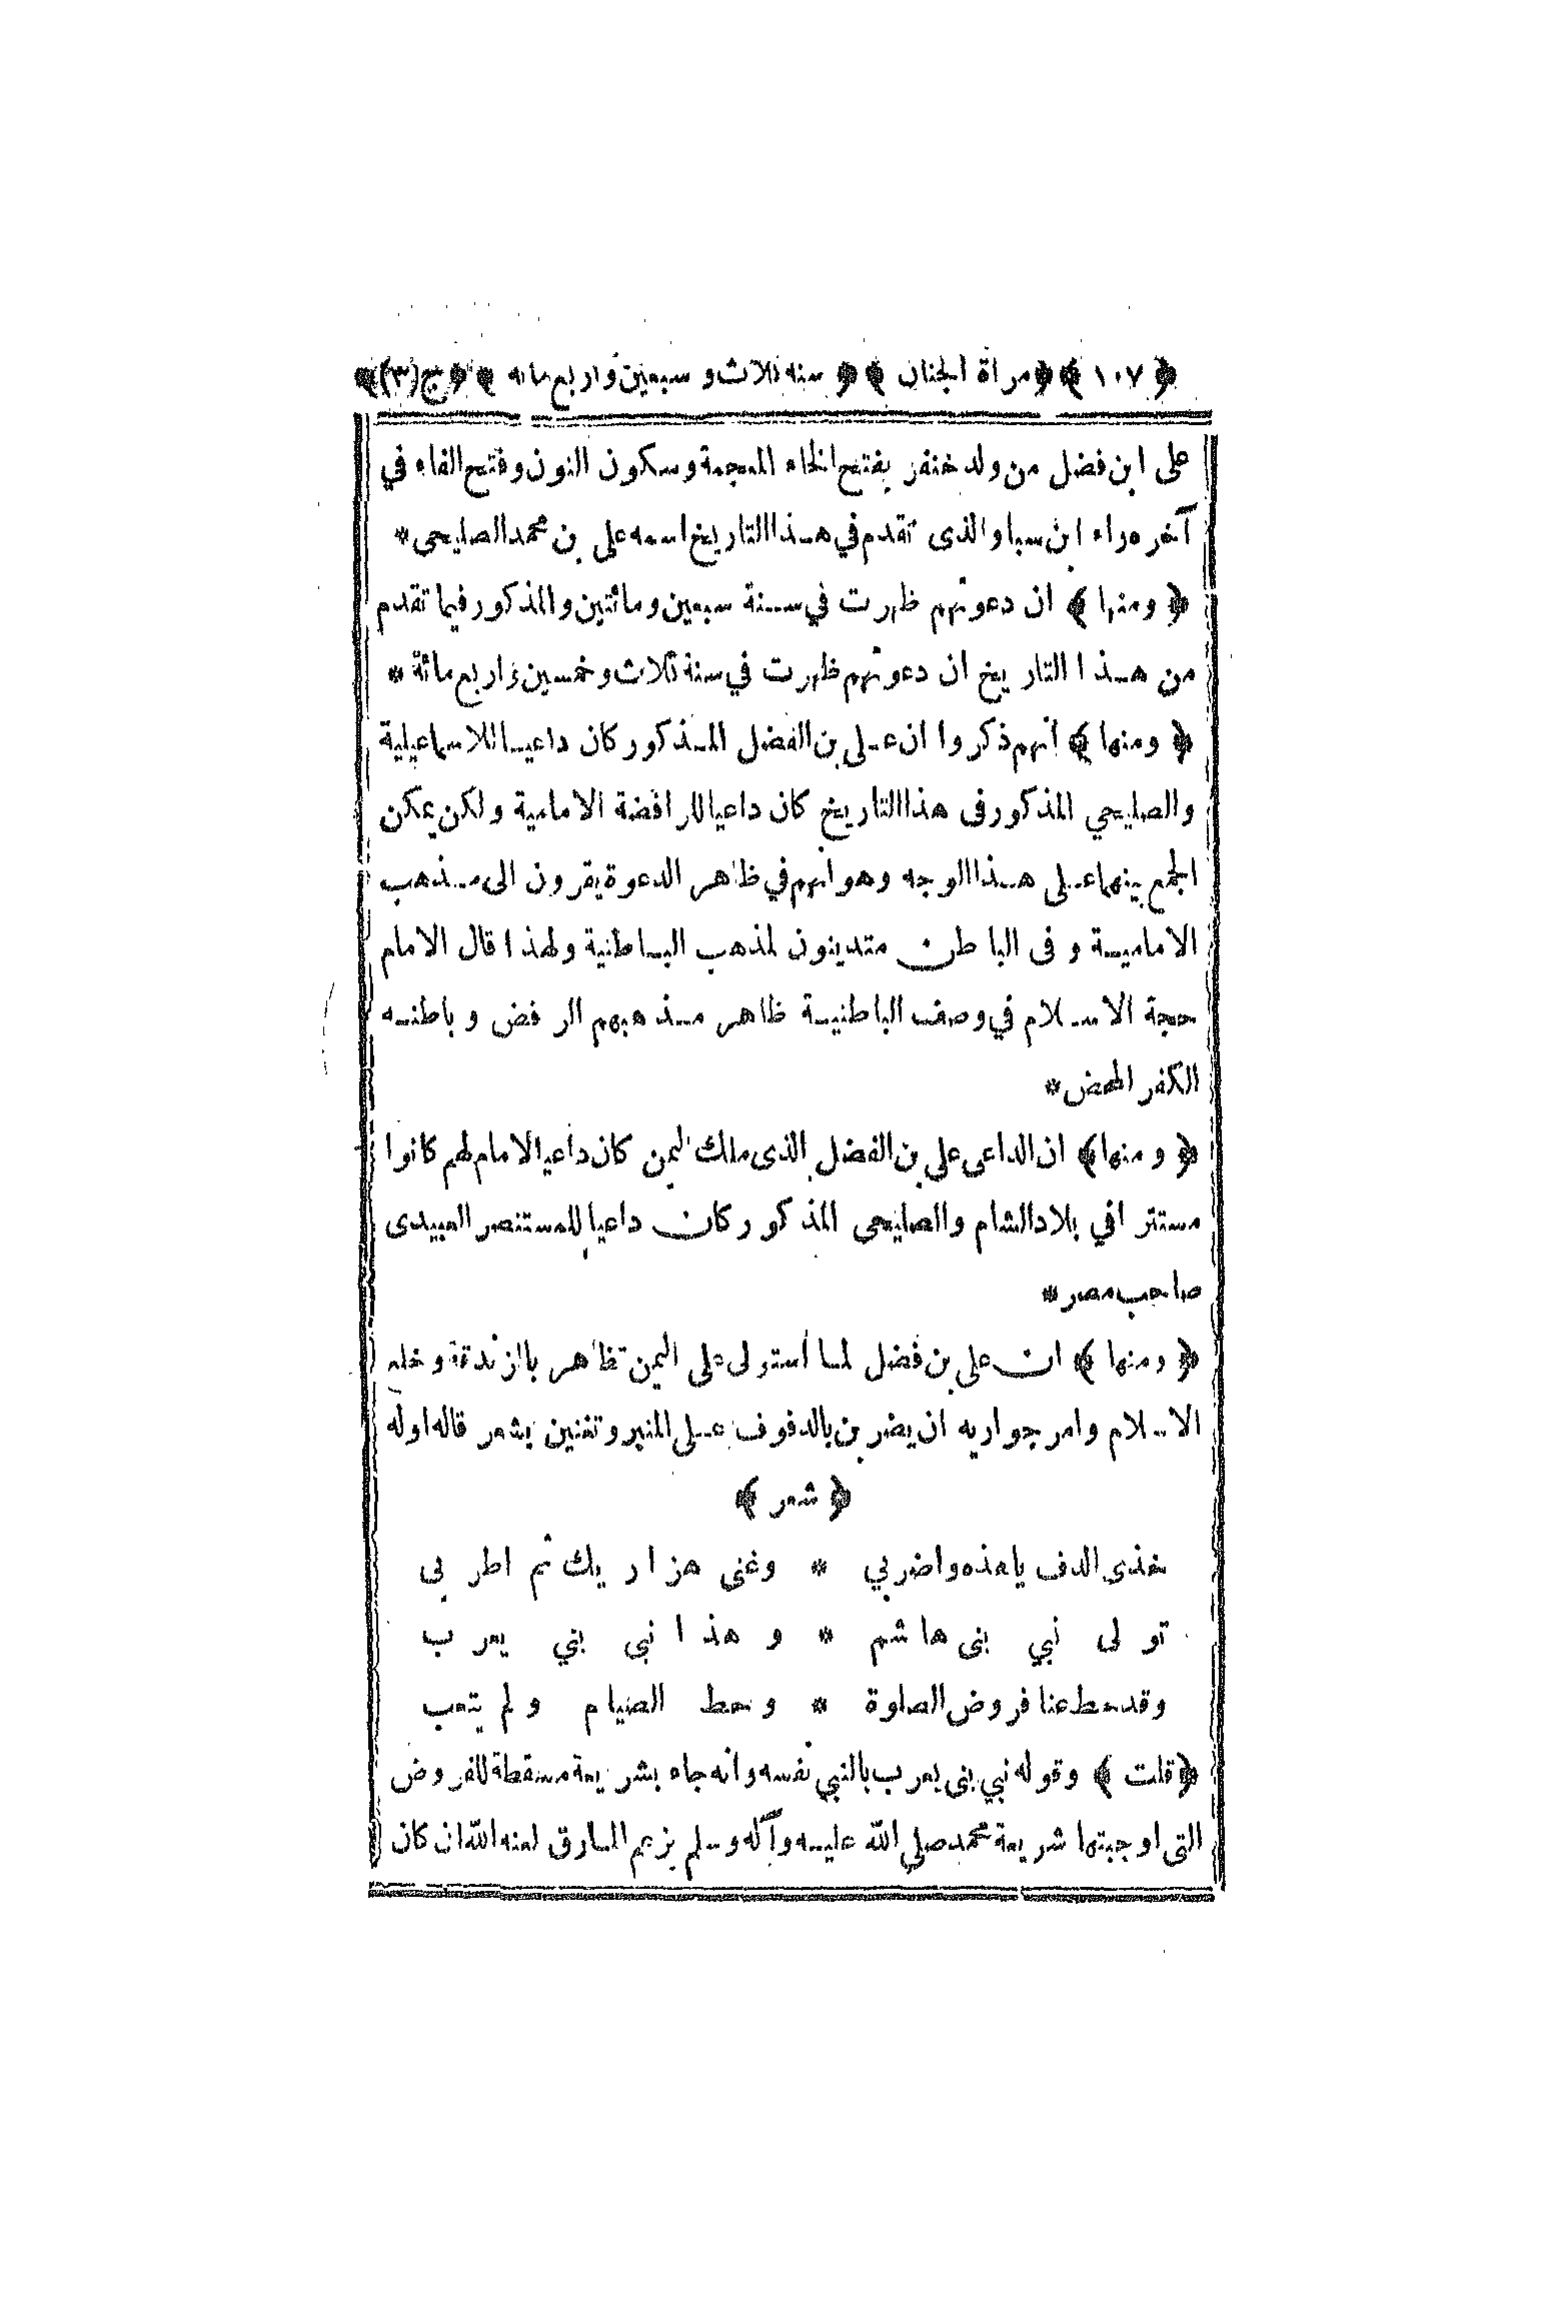 ﴿ ١٠٧ ﴾ ﴿ مرآة الجنان ﴾ ﴿ سنة ثلاث و سبعين واربع مائه ﴾ ﴿ ج (٣) ﴾
على ابن فضل من ولد خنفر بفتح الخاء المعجمة وسكون النون وفتح الفاء في
آخره راء ابن سبا والذى تقدم في هذا التاريخ اسمه على بن محمد الصليحى *
﴿ ومنها ﴾ ان دعوتهم ظهرت في سنة سبعين ومائتين والمذكور فيما تقدم
من هذا التاريخ ان دعوتهم ظهرت في سنة ثلاث وخمسين واربع مائة *
﴿ ومنها ﴾ انهم ذكروا ان على بن الفضل المذكور كان داعيا للاسماعيلية
والصليحي المذكور فى هذا التاريخ كان داعيا للرافضة الامامية ولكن يمكن
الجمع بينهما على هذا الوجه وهو انهم في ظاهر الدعوة يقرون الى مذهب
الامامية و فى الباطن متدينون لمذهب الباطنية ولهذا قال الامام
حجة الاسلام في وصف الباطنية ظاهر مذهبهم الرفض و باطنه
الكفر المحض *
﴿ و منها ﴾ ان الداعى على بن الفضل الذى ملك اليمن كان داعيا لامام لهم كانوا
مستترا في بلاد الشام والصليحى المذكور كان داعيا للمستنصر العبيدى
صاحب مصر *
﴿ ومنها ﴾ ان على بن فضل لما أستولى على اليمن تظاهر بالزندقة و خلع
الاسلام وامر جواريه ان يضربن بالدفوف على المنبر وتغنين بشعر قاله اوله
﴿ شعر ﴾
خذى الدف ياهذه واضربي * وغنى هزاريك ثم اطربى
تولى نبي بنى هاشم * و هذا نبى بني يعرب
وقد حط عنا فروض الصلوة * و حط الصيام و لم يتعب
﴿ قلت ﴾ وقوله نبي بنى يعرب بالنبي نفسه وانه جاء بشريعة مسقطة للفروض
التى اوجبتها شريعة محمد صلى الله عليه وآله وسلم بزعم المارق لعنه الله ان كان